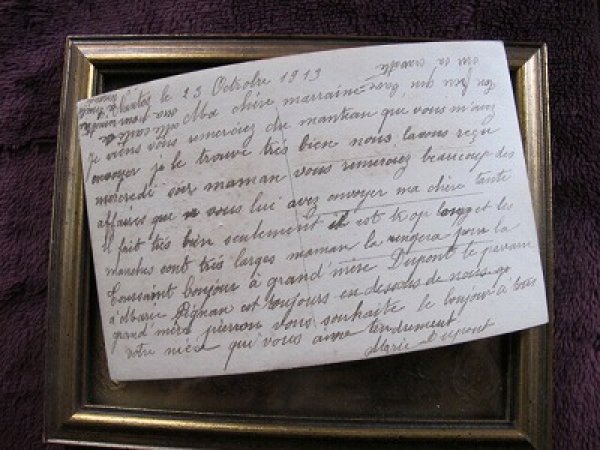 le 23 Octobre 1913
Ma chère marraine
je viens vous remerciez du manteau que vous m'avez
envoyer je le trouve très bien nous lavons reçu
mercredi soir maman vous remerciez beaucoup des
affaires que vous lui avez envoyer ma chère tante
il fait très bien seulement il est trop long et les
manches sont très larges maman la rangera pour la
Toussaint bonjour à grand mère Dupont le parrain
à Marie Pignan est toujours en dessous de nous
grand mère pierron vous souhaite le bonjour a tous
votre nièce qui vous aime tendrement
Marie Dupont